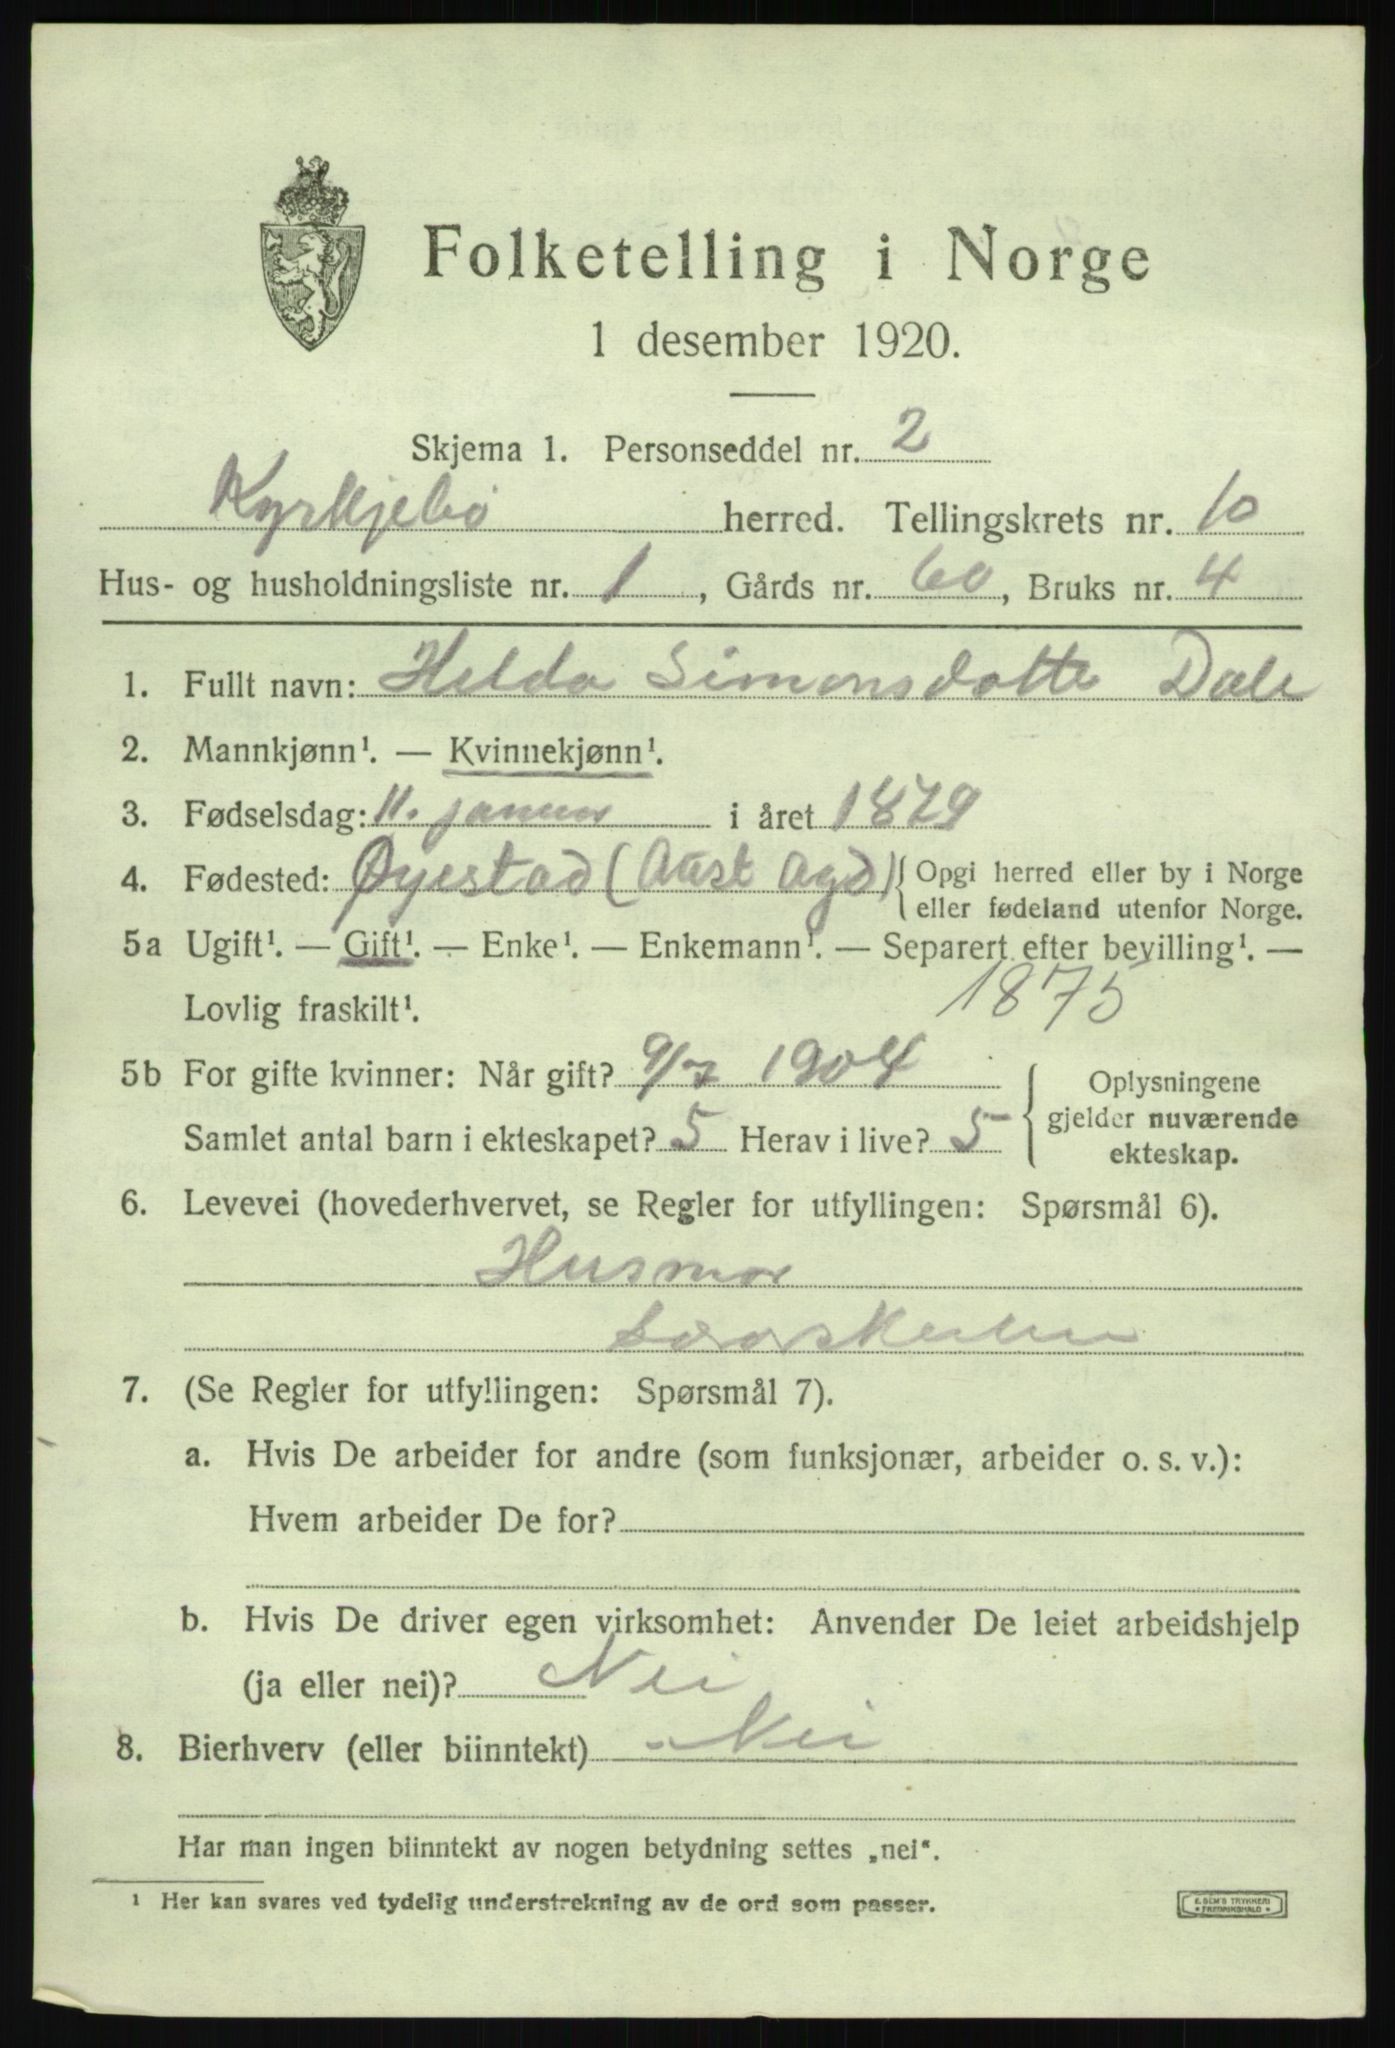 Folketelling i Norge
1 desember 1920.
Skjema 1. Personseddel nr. 2
Kyrkjebø herred. Tellingskrets nr. 10
Hus- og husholdningsliste nr. 1, Gårds nr. 60, Bruks nr. 4
1. Fullt navn: Helda Simonsdotte Dale
2. Mannkjønn¹. — Kvinnekjønn¹.
3. Fødselsdag: 11. januar i året 1879
4. Fødested: Øyestad (Aust Agd) { Opgi herred eller by i Norge
eller fødeland utenfor Norge.
5a Ugift¹. — Gift¹. — Enke¹. — Enkemann¹. — Separert efter bevilling¹. —
Lovlig fraskilt¹. 1875
5b For gifte kvinner: Når gift? 9/7 1904
Samlet antal barn i ekteskapet? 5 Herav i live? 5
Oplysningene
gjelder nuværende
ekteskap.
6. Levevei (hovederhvervet, se Regler for utfyllingen: Spørsmål 6).
Husmor
7. (Se Regler for utfyllingen: Spørsmål 7).
a. Hvis De arbeider for andre (som funksjonær, arbeider o. s. v.):
Hvem arbeider De for?
b. Hvis De driver egen virksomhet: Anvender De leiet arbeidshjelp
(ja eller nei)? Nei
8. Bierhverv (eller biinntekt) Nei
Har man ingen biinntekt av nogen betydning settes „nei“.
¹ Her kan svares ved tydelig understrekning av de ord som passer.
E. SEM'S TRYKKERI
FREDRIKSHALD